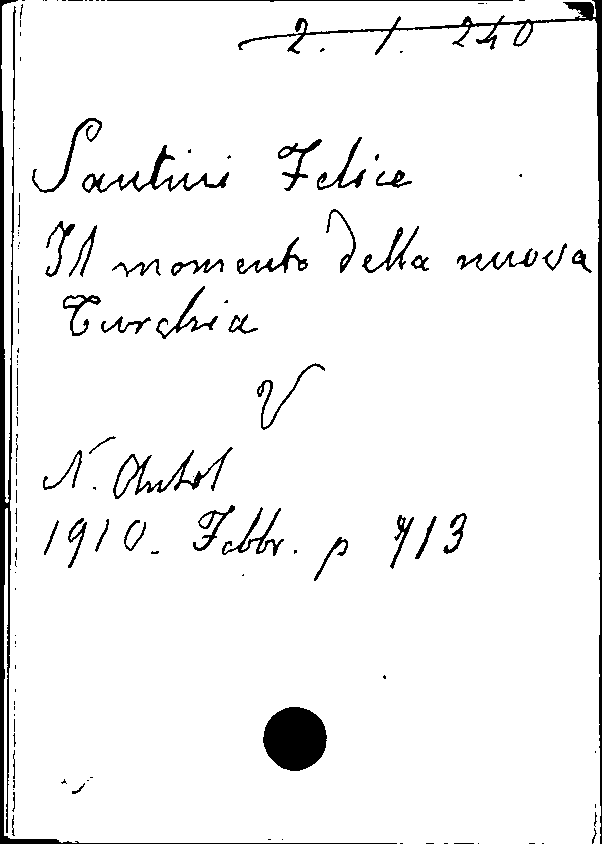 2. 1. 240
Santini Felice
Il momento della nuova
Turchia
V
N. Antol
1910. Febbr. p 713